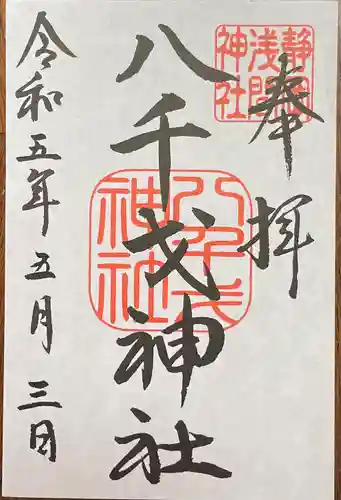 奉拝
静岡
浅間
神社
八千戈神社
八千戈
神社
令和五年五月三日